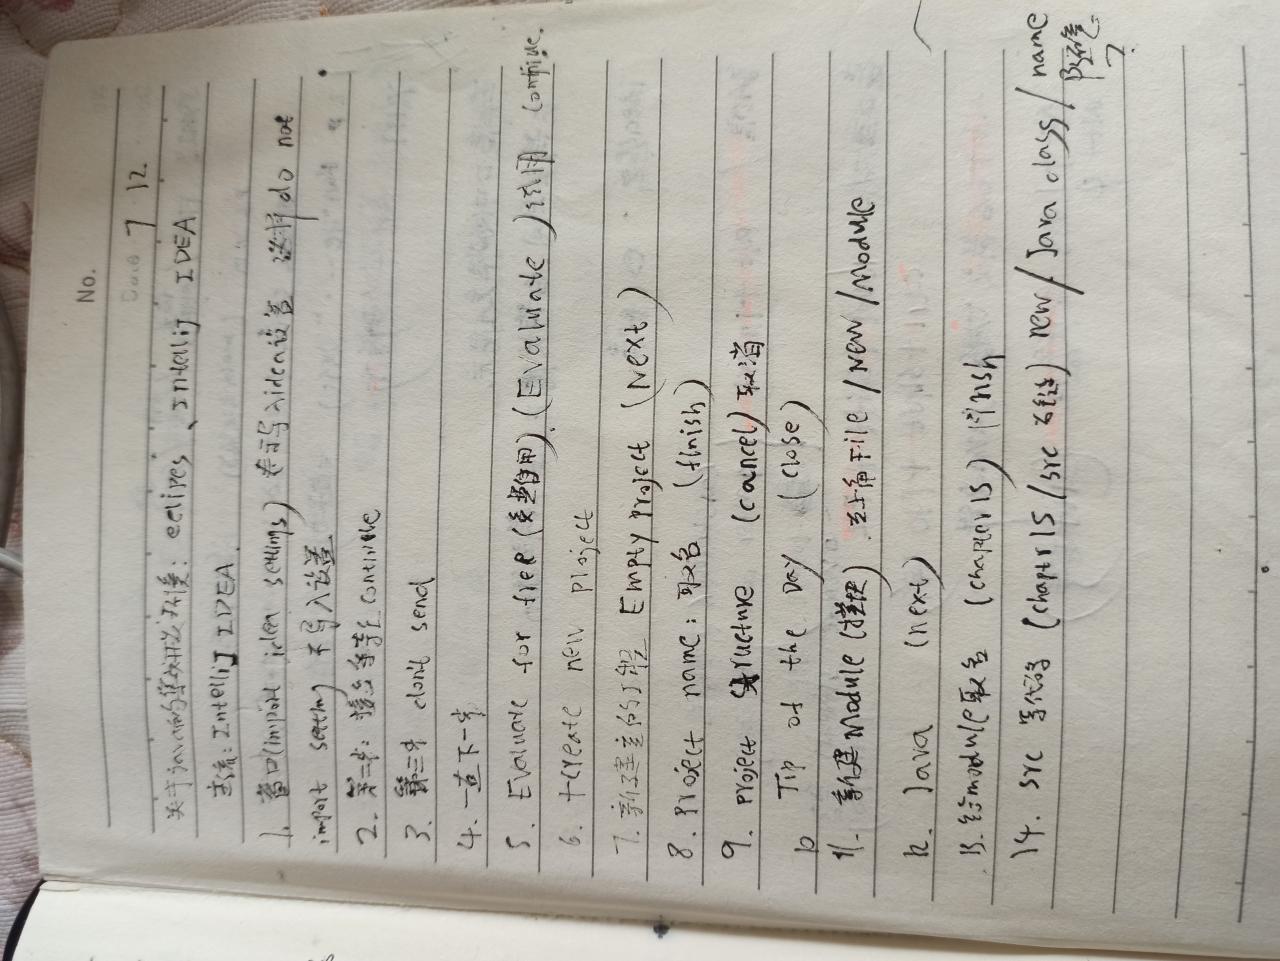 No.
Date 7 12.
关于java的集成开发环境: eclipes、Intellij IDEA
主流: Intellij IDEA
1. 窗口(import idea settings) 关于导入idea设置 选择do not
import setting 不导入设置
2. 第二步: 接点 continue
3. 第三步 don't send
4. 一直下一步
5. Evaluate for free (免费使用) (Evaluate) 试用 continue.
6. +create new project
7. 新建的工程 Empty project (Next)
8. project name: 取名 (finish)
9. project structure (cancel) 取消
10 Tip of the Day (close)
11. 新建Module (模块) 左上角 File / New / Module
12. Java (next)
13. 给module取名 (chapter15) finish
14. src 写代码 (chaptr15/src 右击) new / Java class / name